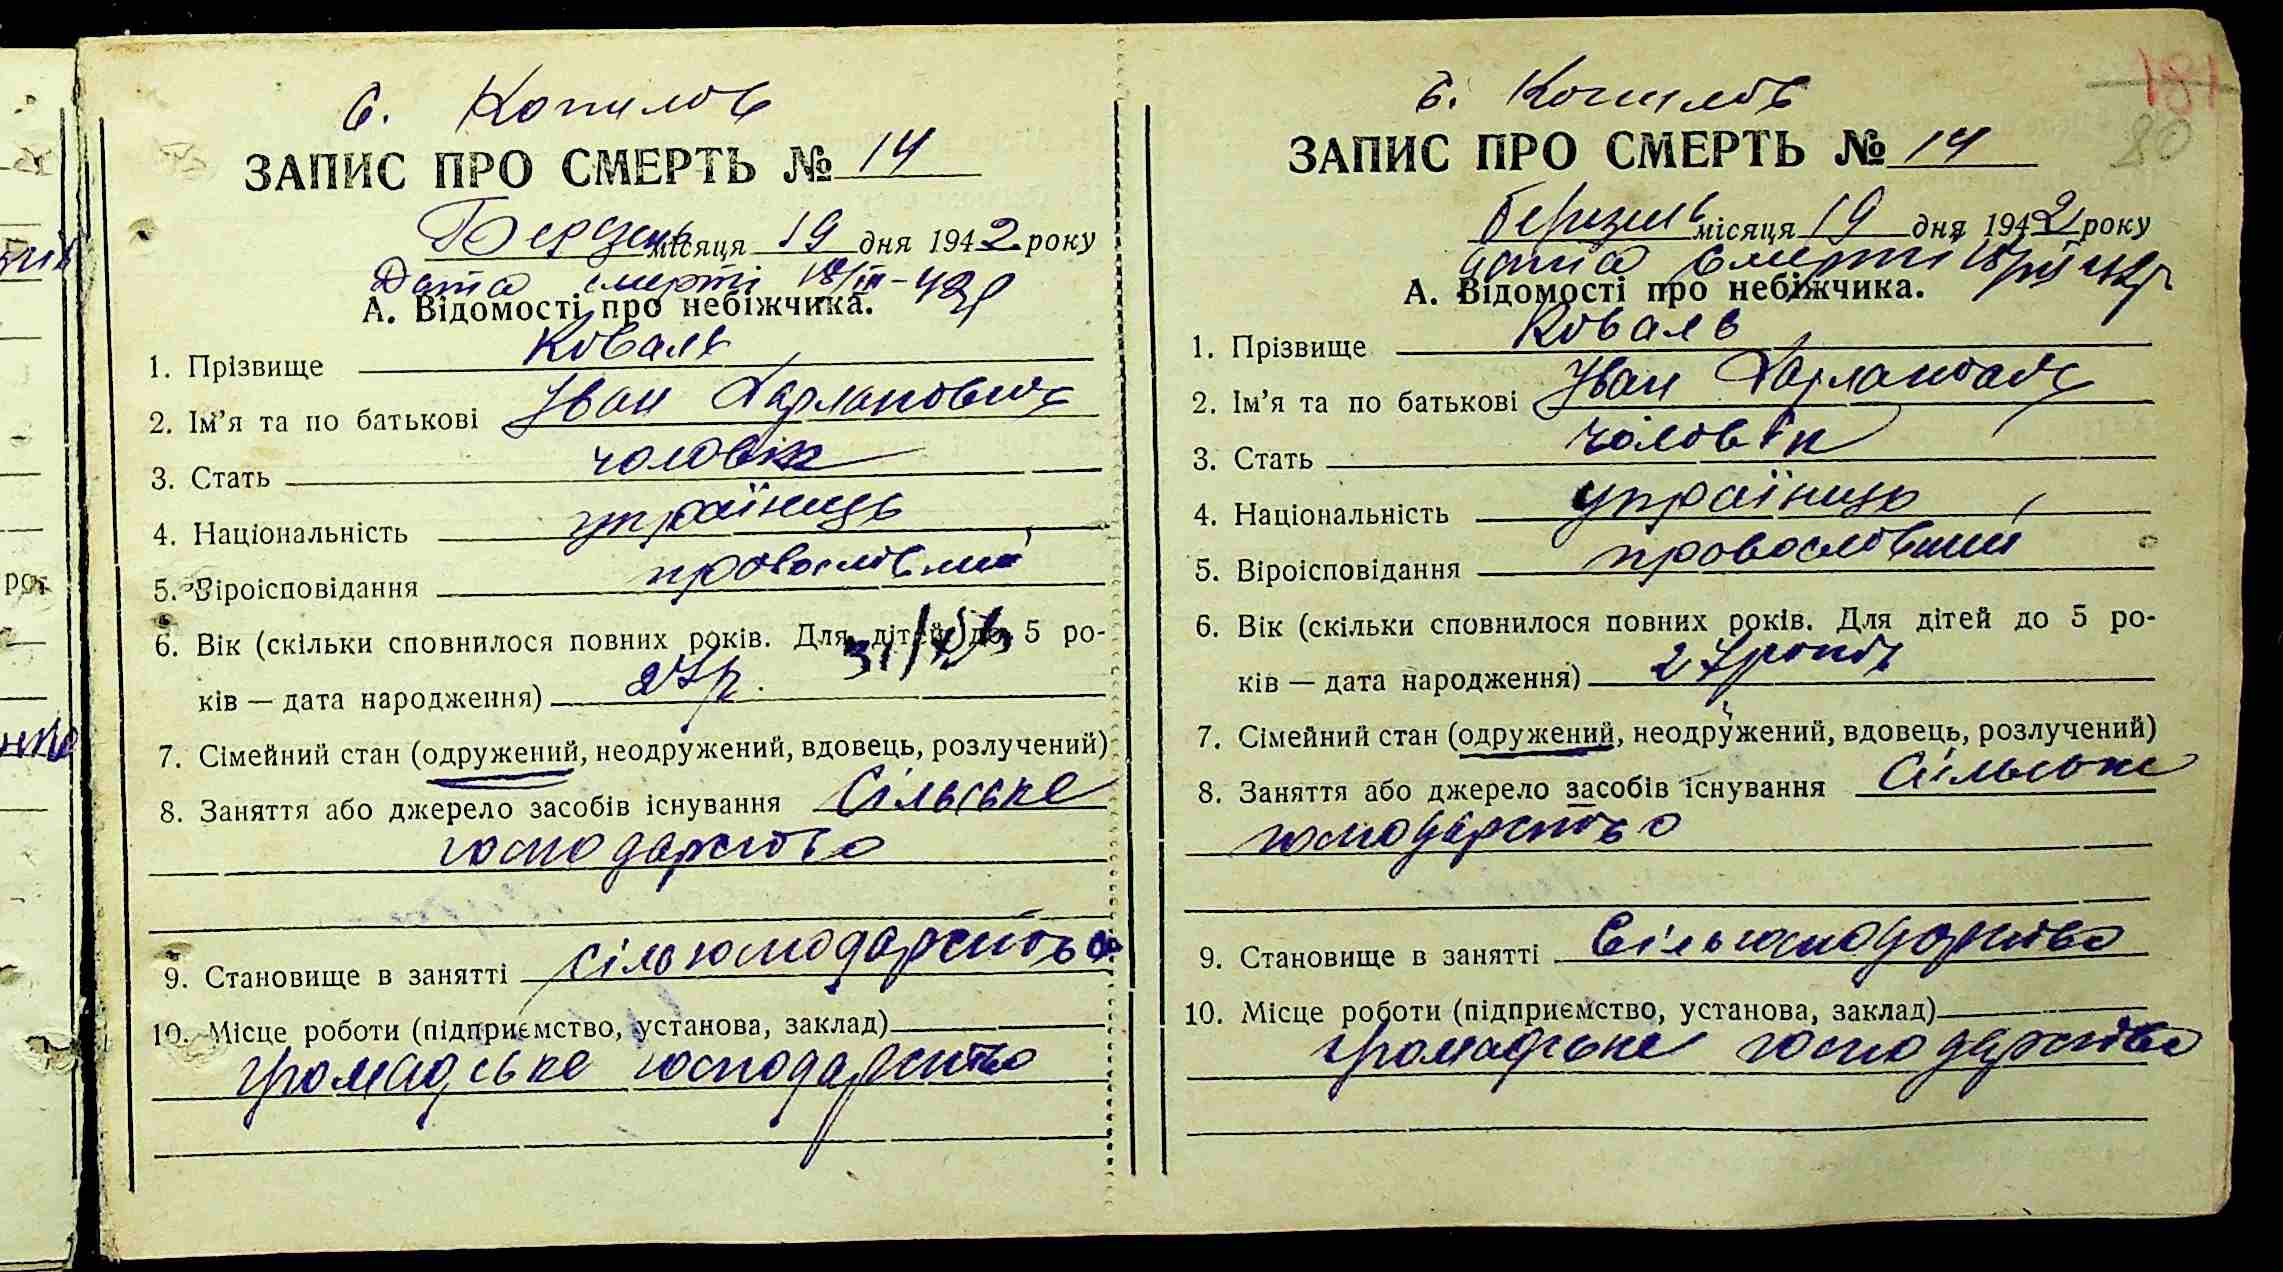 с. Копилов
ЗАПИС ПРО СМЕРТЬ № 14
Березень місяця 19 дня 1942 року
Дата смерті 18/III-42р
А. Відомості про небіжчика.
1. Прізвище Коваль
2. Ім'я та по батькові Іван Харланович
3. Стать чоловік
4. Національність українець
5. Віроісповідання провославний
6. Вік (скільки сповнилося повних років. Для дітей до 5 ро-
ків — дата народження) 27р.
7. Сімейний стан (одружений, неодружений, вдовець, розлучений)
8. Заняття або джерело засобів існування Сільське
господарство
9. Становище в занятті сільгосподарство
10. Місце роботи (підприємство, установа, заклад)
громадське господарство
с. Копилов
ЗАПИС ПРО СМЕРТЬ № 14
березень місяця 19 дня 1942 року
дата смерті 18/III 42р
А. Відомості про небіжчика.
1. Прізвище Коваль
2. Ім'я та по батькові Іван Харланович
3. Стать чоловік
4. Національність українець
5. Віроісповідання провославний
6. Вік (скільки сповнилося повних років. Для дітей до 5 ро-
ків — дата народження) 27 років
7. Сімейний стан (одружений, неодружений, вдовець, розлучений)
8. Заняття або джерело засобів існування Сільське
господарство
9. Становище в занятті Сільгосподарство
10. Місце роботи (підприємство, установа, заклад)
громадське господарство
181
80